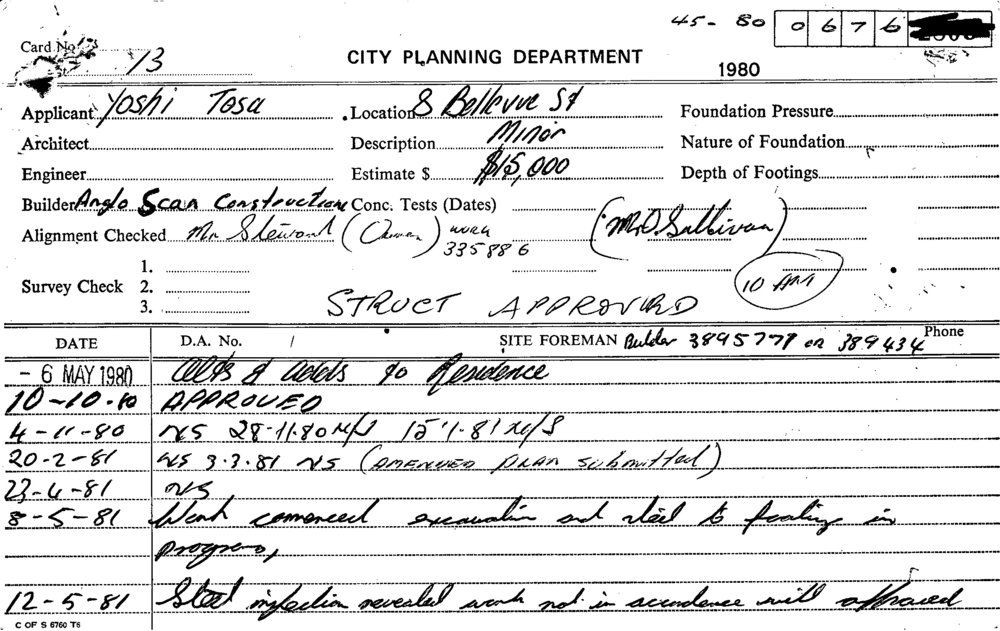 45-80 0676
Card No. 13
CITY PLANNING DEPARTMENT
1980
Applicant Yoshi Tosa Location 8 Bellevue St Foundation Pressure
Architect Description Minor Nature of Foundation
Engineer Estimate $ $15,000 Depth of Footings
Builder Anglo Scan Construction Conc. Tests (Dates)
Alignment Checked Mr Steward (Owner) work 335886 (Mr O. Sullivan)
1.
Survey Check 2. 10 AM
3. STRUCT APPROVED
DATE D.A. No. / SITE FOREMAN Builder 3895779 or 389434 Phone
- 6 MAY 1980 Alts & adds to Residence
10-10-80 APPROVED
4-11-80 NS 28-11-80 N/S 15-1-81 N/S
20-2-81 NS 3.3.81 NS (AMENDED PLAN submitted)
23-4-81 NS
8-5-81 Work comenced excavation and steel to footings in
progress,
12-5-81 Steel inspection revealed work not in accordence with approved
C OF S 6760 T6